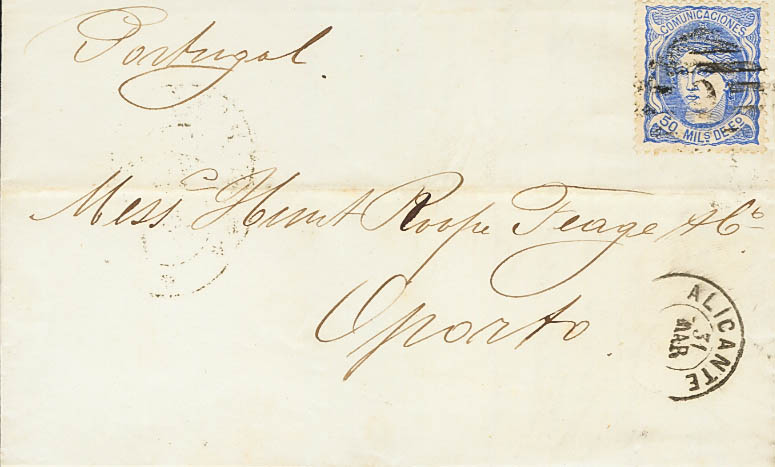 Portugal.
COMUNICACIONES
50. MILS. DE Eo
Messrs Hunt Roope Teage & Co
Oporto.
ALICANTE
31
MAR